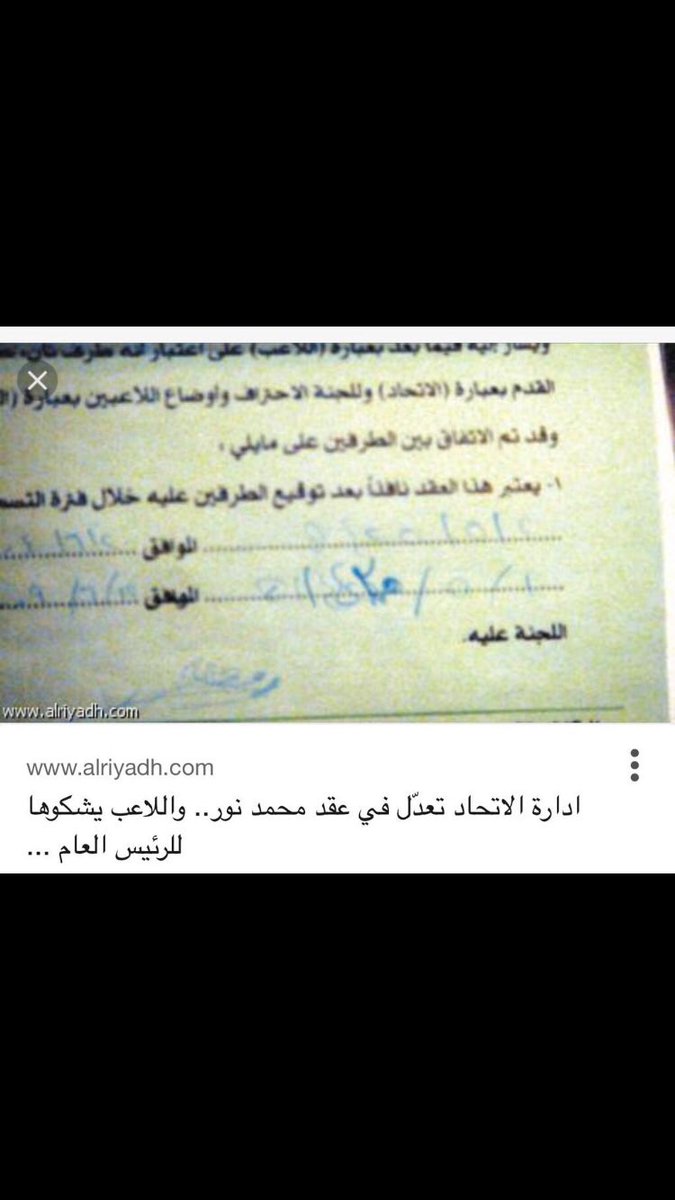 ويشار إليه فيما بعد بعبارة (اللاعب) على اعتبار أنه طرف ثان
القدم بعبارة (الاتحاد) وللجنة الاحتراف وأوضاع اللاعبين بعبارة
وقد تم الاتفاق بين الطرفين على مايلي :
١- يعتبر هذا العقد نافذاً بعد توقيع الطرفين عليه خلال فترة
الموافق
الموافق
اللجنة عليه.
www.alriyadh.com
www.alriyadh.com
ادارة الاتحاد تعدّل في عقد محمد نور.. واللاعب يشكوها
للرئيس العام ...